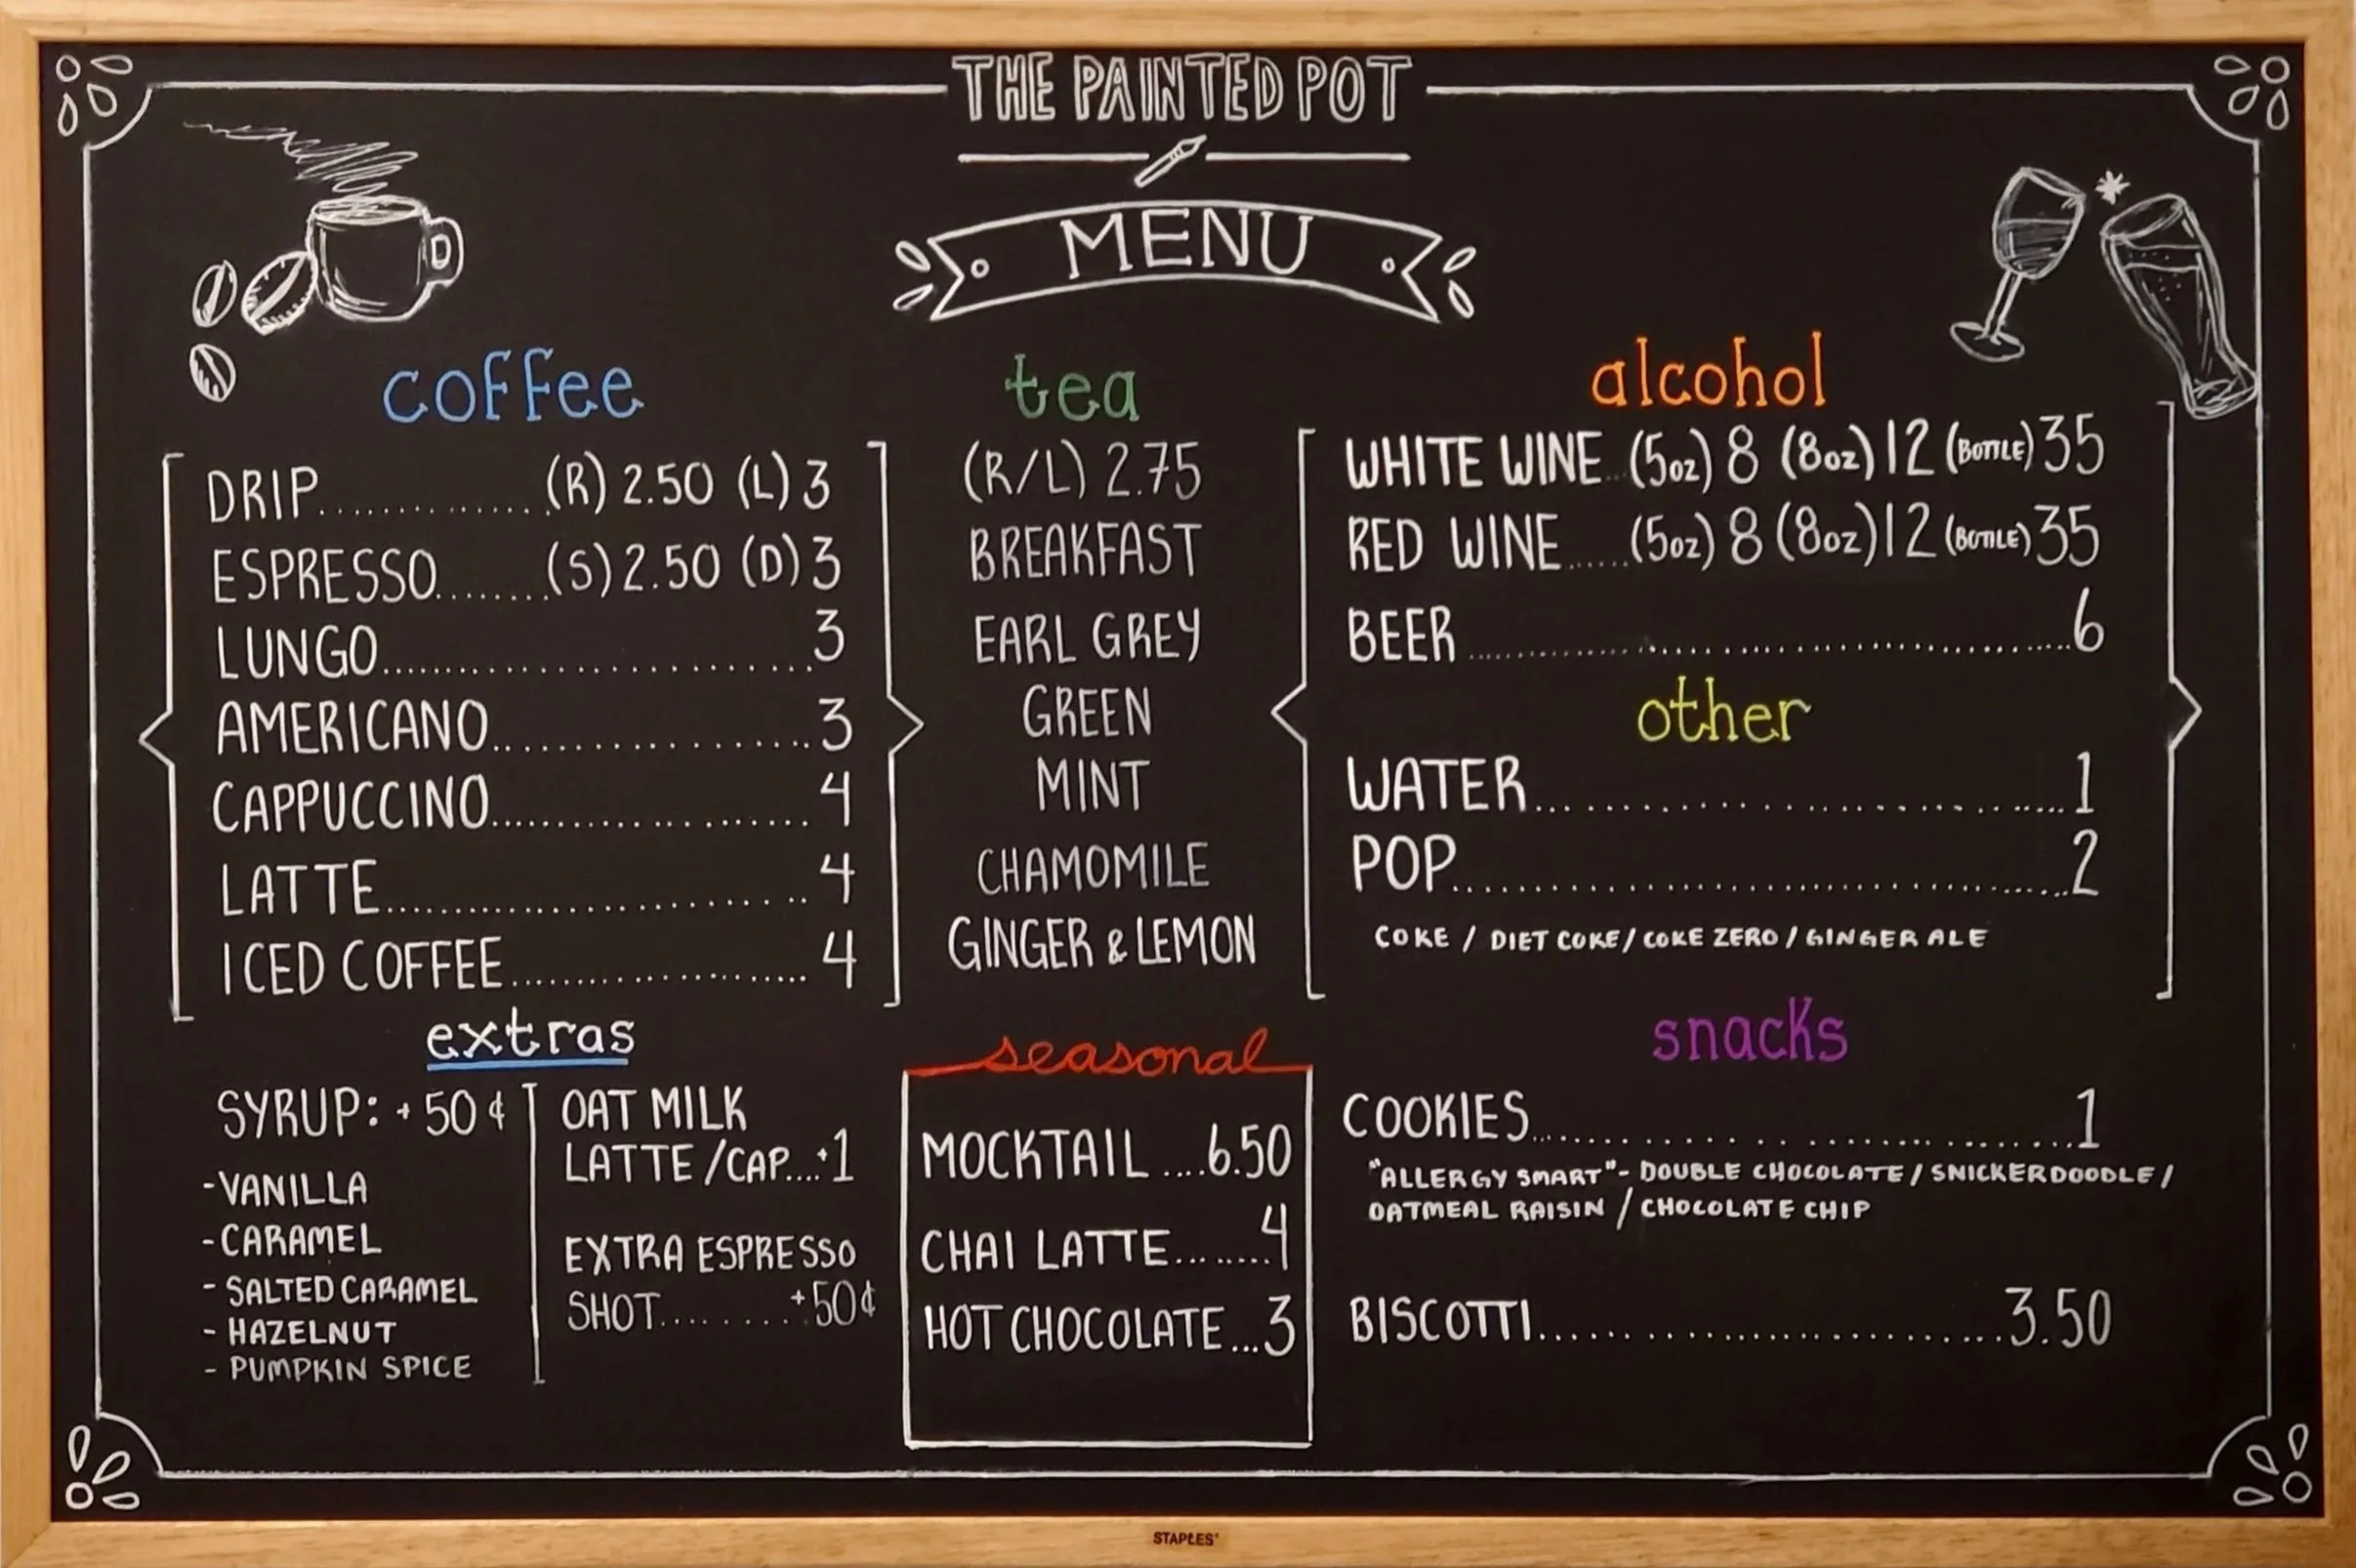 THE PAINTED POT
MENU
coffee
DRIP.............. (R) 2.50 (L) 3
ESPRESSO........(S) 2.50 (D) 3
LUNGO............................3
AMERICANO...................3
CAPPUCCINO.................... 4
LATTE.............................. 4
ICED COFFEE..................... 4
extras
SYRUP: +50¢
-VANILLA
-CARAMEL
- SALTED CARAMEL
- HAZELNUT
- PUMPKIN SPICE
OAT MILK
LATTE /CAP....+1
EXTRA ESPRESSO
SHOT.........+50¢
tea
(R/L) 2.75
BREAKFAST
EARL GREY
GREEN
MINT
CHAMOMILE
GINGER & LEMON
seasonal
MOCKTAIL ....6.50
CHAI LATTE........4
HOT CHOCOLATE...3
alcohol
WHITE WINE..(5oz) 8 (8oz) 12 (BOTTLE) 35
RED WINE......(5oz) 8 (8oz) 12 (BOTTLE) 35
BEER........................................6
other
WATER..................................1
POP........................................2
COKE / DIET COKE / COKE ZERO / GINGER ALE
snacks
COOKIES..................................1
"ALLERGY SMART" - DOUBLE CHOCOLATE / SNICKERDOODLE /
OATMEAL RAISIN / CHOCOLATE CHIP
BISCOTTI..................................3.50
STAPLES